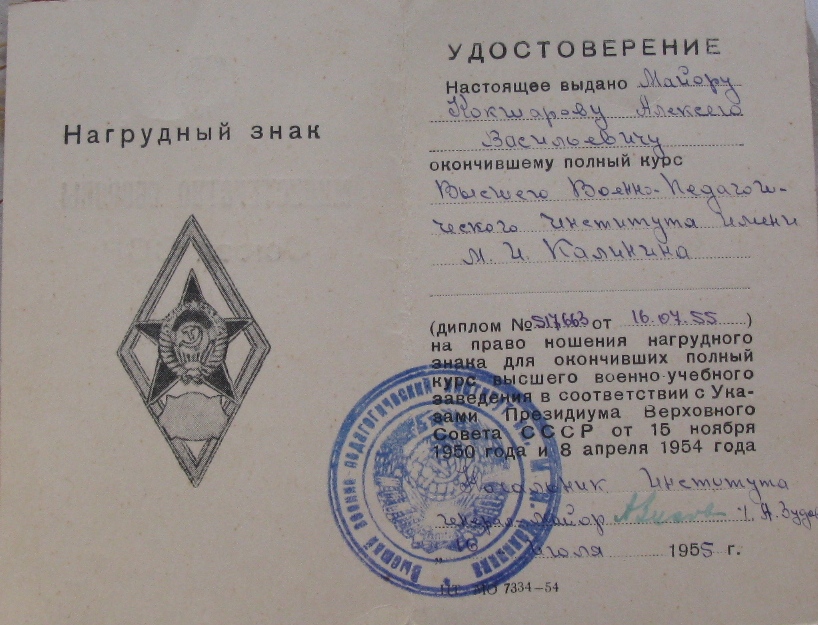 Нагрудный знак
УДОСТОВЕРЕНИЕ
Настоящее выдано Майору
Кокшарову Алексею
Васильевичу
окончившему полный курс
Высшего Военно-Педагоги-
ческого Института имени
М. И. Калинина
(диплом № 517663 от 16.07.55)
на право ношения нагрудного
знака для окончивших полный
курс высшего военно-учебного
заведения в соответствии с Ука-
зами Президиума Верховного
Совета СССР от 15 ноября
1950 года и 8 апреля 1954 года
Начальник Института
генерал-майор
"16" июля 1955 г.
МО 7334—54